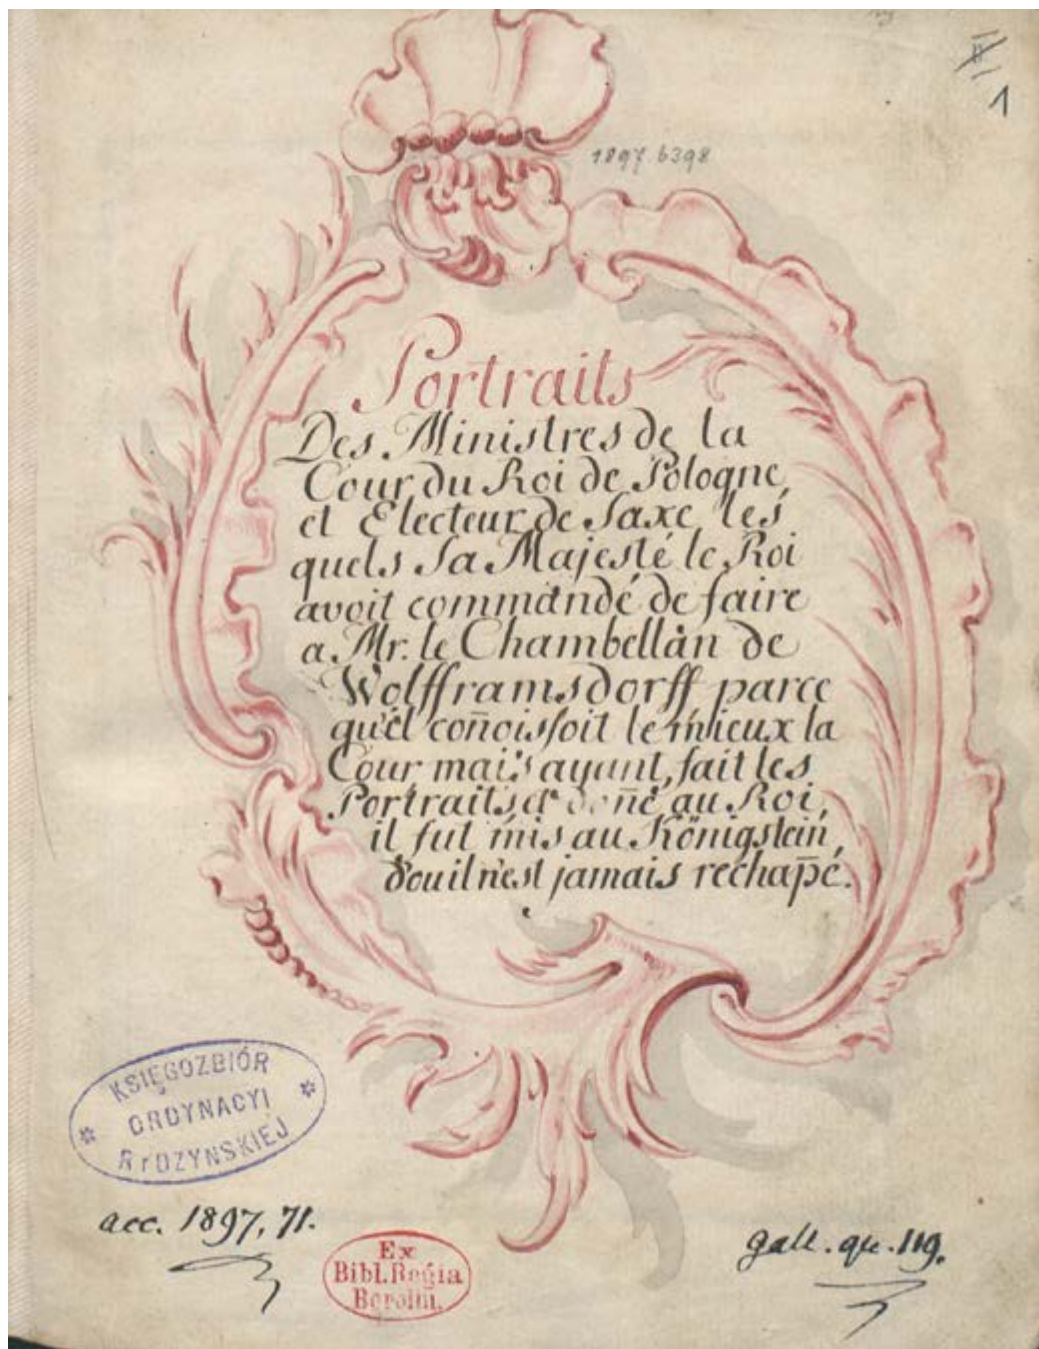 1
1897.6398
Portraits
Des Ministres de la
Cour du Roi de Pologne,
et Electeur de Saxe les
quels Sa Majesté le Roi
avoit commandé de faire
a Mr. le Chambellan de
Wolfframsdorff parce
qu'el coñoissoit le mieux la
Cour mais ayant fait les
Portraits & doñé au Roi,
il fut mis au Königstein,
d'ou il n'est jamais rechapé.
KSIĘGOZBIÓR
ORDYNACYI
RYDZYNSKIEJ
acc. 1897, 71.
Ex
Bibl. Regia
Berolin.
gall. qu. 119.